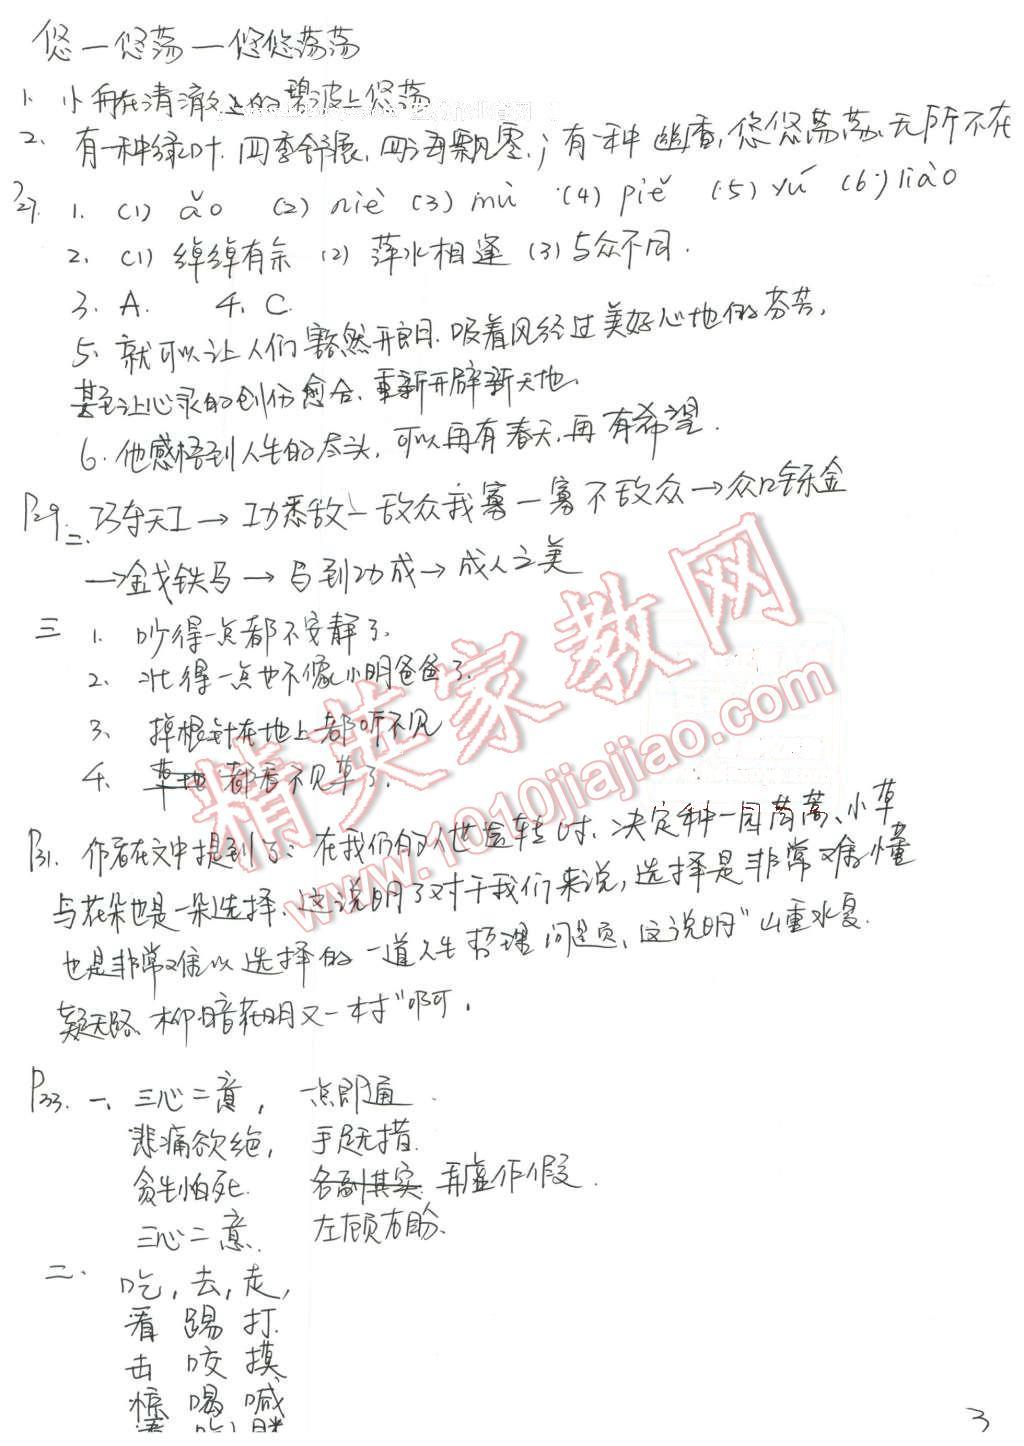 悠—悠荡—悠悠荡荡
1. 小舟在清澈的碧波上悠荡
2. 有一种绿叶,四季舒展,四海飘零;有一种幽香,悠悠荡荡,无所不在
P27. 1. (1) ǎo (2) niè (3) mù (4) piě (5) yú (6) liào
2. (1) 绰绰有余 (2) 萍水相逢 (3) 与众不同.
3. A. 4. C.
5. 就可以让人们豁然开朗,吸着风经过美好心地的芬芳,
甚至让心灵的创伤愈合,重新开辟新天地.
6. 他感悟到人生的尽头,可以再有春天,再有希望.
P29. 二. 巧夺天工→工力悉敌—敌众我寡—寡不敌众→众口铄金
→金戈铁马→马到功成→成人之美
三 1. 吵得一点都不安静了.
2. 壮得一点也不像小明爸爸了.
3. 掉根针在地上都听不见
4. 草地都看不见草了.
P31. 作者在文中提到了:在我们的人世途转时,决定种一园茼蒿、小草
与花朵也是一朵选择,这说明了对于我们来说,选择是非常难懂
也是非常难以选择的一道人生哲理问题,这说明"山重水复
疑无路,柳暗花明又一村"啊.
P33. 一、三心二意, 一点即通.
悲痛欲绝, 手足无措.
贪生怕死. 名副其实 弄虚作假.
三心二意. 左顾右盼.
二. 吃,去,走,
看 踢 打.
击 咬 摸
惊 喝 喊
3
精英家教网
www.1010jiajiao.com